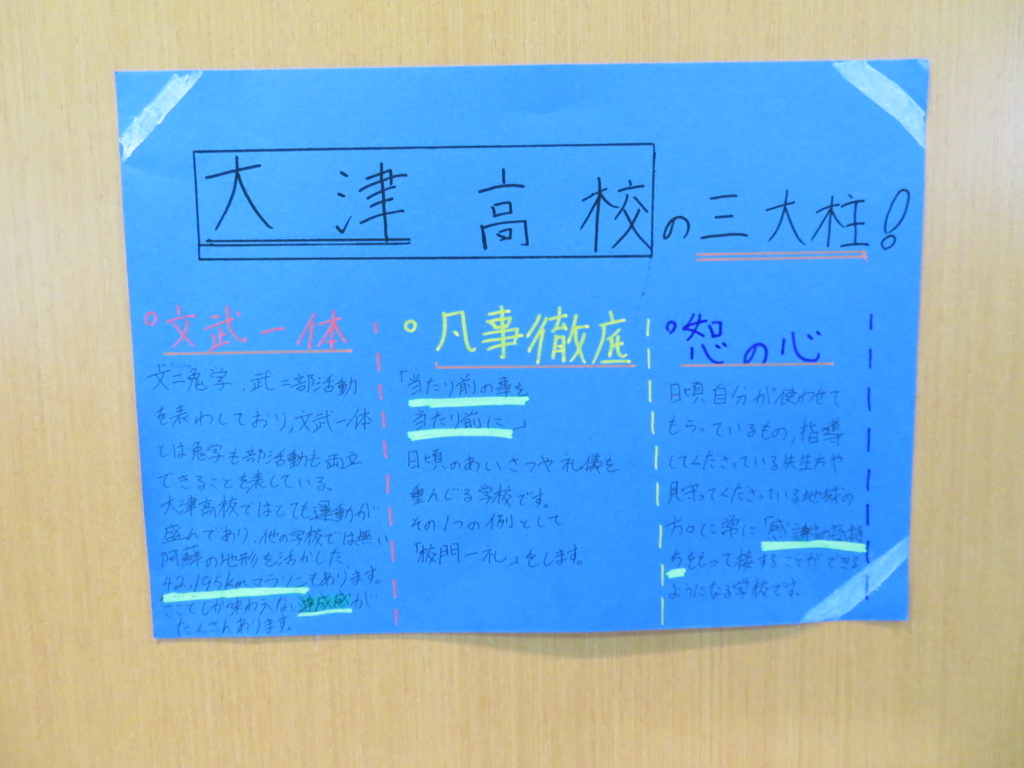 大津高校の三大柱!
文武一体
文=勉学、武=部活動
を表わしており、文武一体
とは勉学も部活動も両立
できることを表している。
大津高校ではとても運動が
盛んであり、他の学校では無い
阿蘇の地形を活かした
42.195kmマラソンもあります。
ここでしか味わえない達成感が
たくさんあります。
凡事徹底
「当たり前の事を
当たり前に」
日頃のあいさつや礼儀を
重んじる学校です。
その1つの例として
「校門一礼」をします。
恕の心
日頃自分が使わせて
もらっているもの、指導
してくださっている先生方や
見守ってくださっている地域の
方々に常に「感謝の気持
ちをもって接することができる
ようになる学校です。